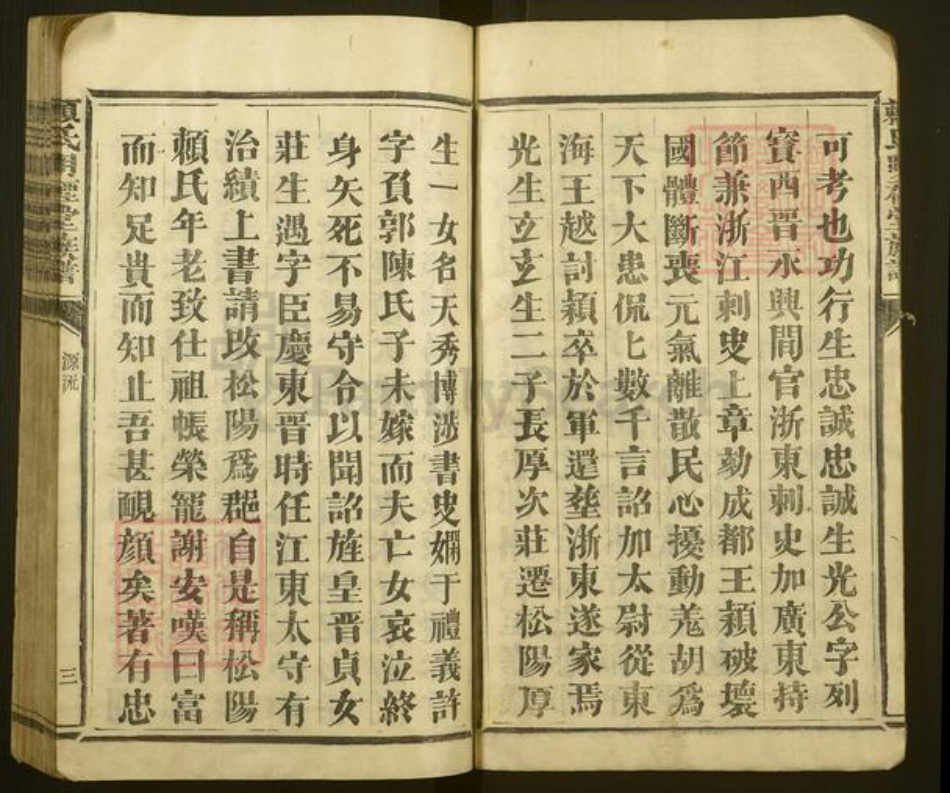 可考也功行生忠誠忠誠生光公字列
賓西晋永興間官浙東刺史加廣東持
節兼浙江刺史上章劾成都王頴破壞
國體斷喪元氣離散民心擾動羗胡爲
天下大患侃上數千言詔加太尉從東
海王越討頴卒於軍還塟浙東遂家焉
光生玄玄生二子長厚次莊遷松陽厚
生一女名天秀博涉書史嫻于禮義許
字孭郭陳氏子未嫁而夫亡女哀泣終
身矢死不易守令以聞詔旌皇晋貞女
莊生遇字臣慶東晋時任江東太守有
治績上書請攺松陽爲郡自是稱松陽
賴氏年老致仕祖帳榮寵謝安嘆曰富
而知足貴而知止吾甚靦顔矣著有忠
源流
三